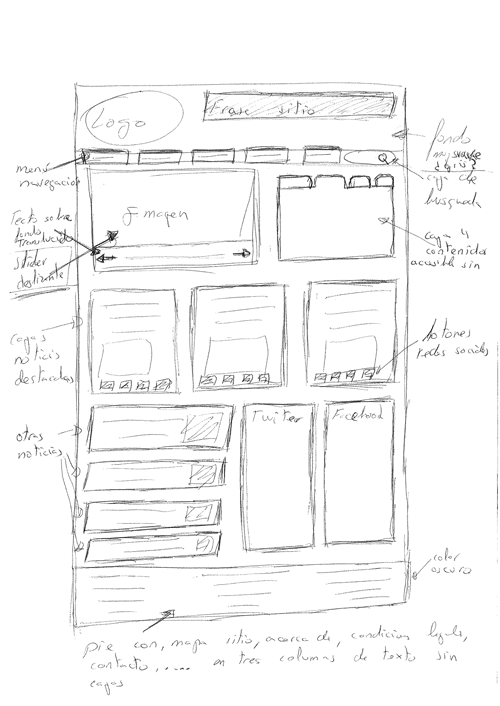 Logo
Frase sitio
fondo
muy suave
menú
navegación
caja de
busqueda
Texto sobre
fondo
translucido
slider
deslizante
Imagen
caja 4
contenidos
accesible sin
cajas
noticis
destacadas
botones
redes sociales
otras
noticias
Twitter
Facebook
color
oscuro
pie con, mapa sitio, acerca de, condicions legals,
contacto, ..... en tres columas de texto sin
cajas